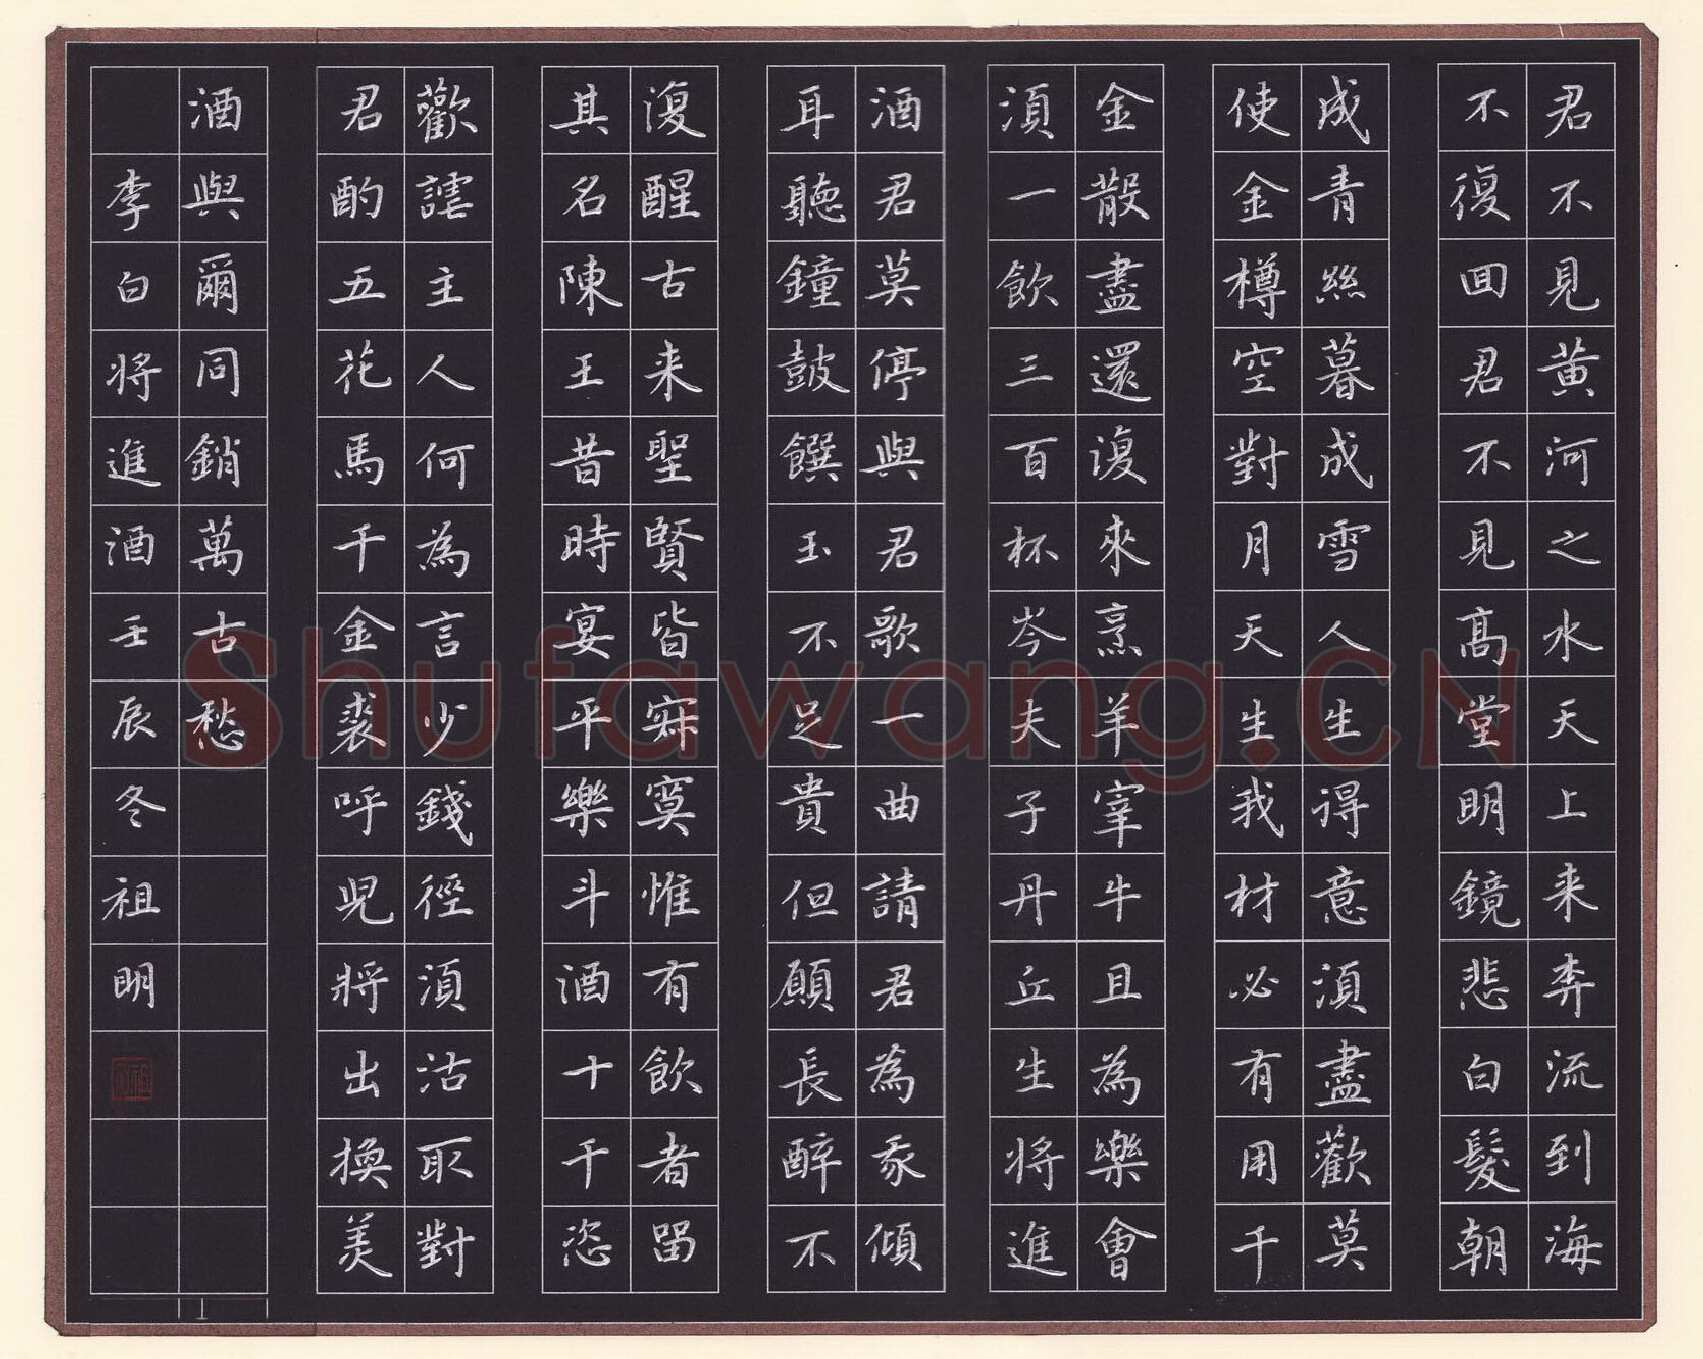 君不見黃河之水天上来奔流到海
不復囬君不見髙堂明鏡悲白髮朝
成青絲暮成雪人生得意須盡歡莫
使金樽空對月天生我材必有用千
金散盡還復來烹羊宰牛且為樂會
須一飲三百杯岑夫子丹丘生将進
酒君莫停與君歌一曲請君為我傾
耳聽鐘鼓饌玉不足貴但願長醉不
復醒古来聖賢皆寂寞惟有飲者留
其名陳王昔時宴平樂斗酒十千恣
歡謔主人何為言少錢徑須沽取對
君酌五花馬千金裘呼兒將出換美
酒與爾同銷萬古愁
李白将進酒壬辰冬祖明
Shufawang.CN